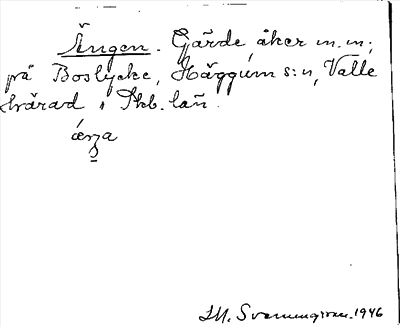 Ängen. Gärde, åker m.m.,
på Boslycke, Häggum s:n, Valle
härad, Skb. län.
ærja
1946